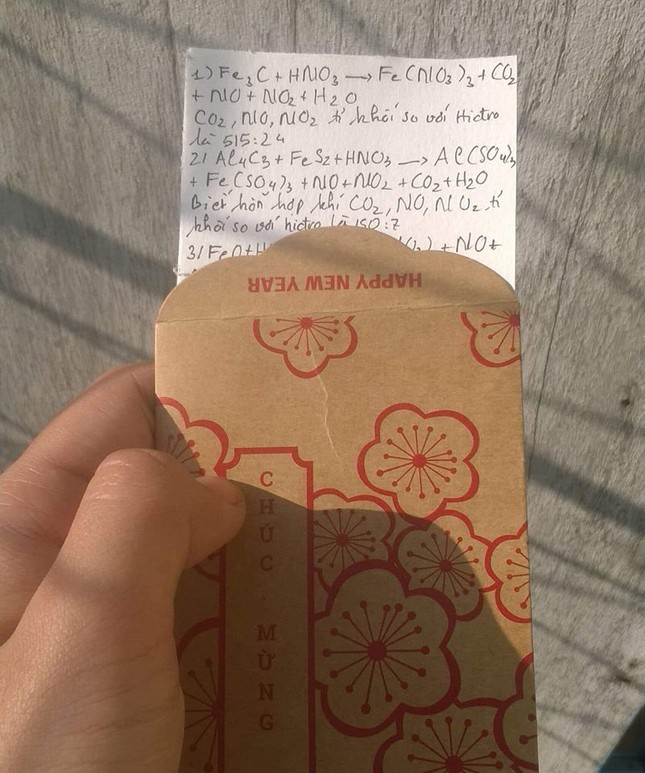 1) Fe3C + HNO3 → Fe(NO3)3 + CO2
+ NO + NO2 + H2O
CO2, NO, NO2 tỉ khối so với Hidro
là 515:24
2/ Al4C3 + FeS2 + HNO3 → Al(SO4)3
+ Fe(SO4)3 + NO + NO2 + CO2 + H2O
Biết hỗn hợp khí CO2, NO, NO2 tỉ
khối so với hidro là 150:7
3/ FeO + H + NO +
HAPPY NEW YEAR
CHÚC MỪNG